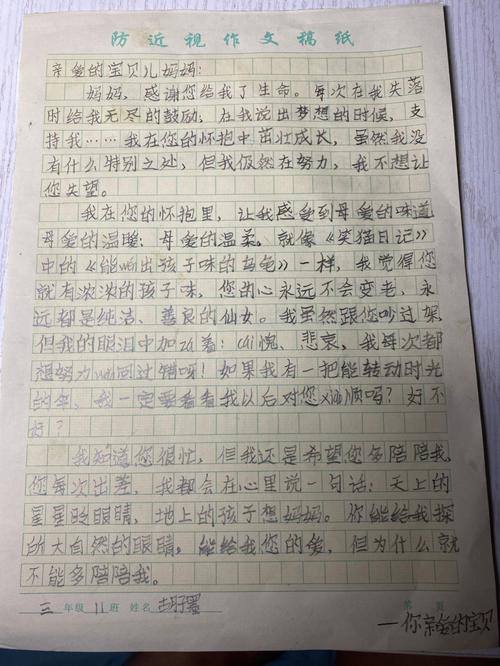 防近视作文稿纸
亲爱的宝贝儿妈妈:
妈妈,感谢您给我了生命。每次在我失落
时给我无尽的鼓励;在我说出梦想的时候,支
持我……我在您的怀抱中茁壮成长,虽然我没
有什么特别之处,但我仍然在努力,我不想让
您失望。
我在您的怀抱里,让我感受到母爱的味道
母爱的温暖;母爱的温柔。就像《笑猫日记》
中的《能wèi出孩子味的乌龟》一样,我觉得您
就有浓浓的孩子味,您的心永远不会变老,永
远都是纯洁、善良的仙女。我虽然跟您吵过架,
但我的眼泪中加zá着:cán愧、悲哀,我每次都
想努力wǎn回过错呀!如果我有一把能转动时光
的伞,我一定要看看我以后对您xiào顺吗?好不
好?
我知道您很忙,但我还是希望您多陪陪我,
您每次出差,我都会在心里说一句话:天上的
星星眨眼睛,地上的孩子想妈妈。你能给我探
所大自然的眼睛,能给我您的爱,但为什么就
不能多陪陪我。
三年级11班 姓名
第 页
—你亲爱的宝贝